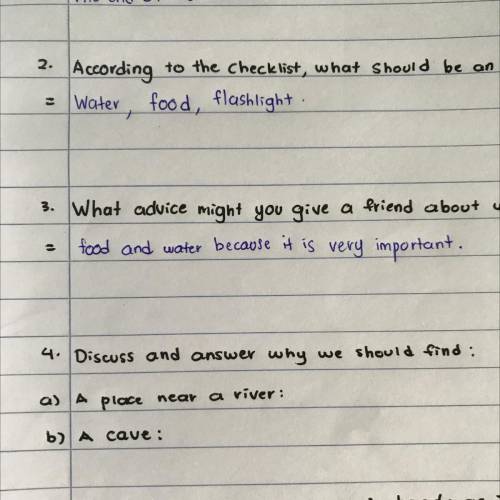 2. According to the checklist, what should be an
= Water, food, flashlight.
3. What advice might you give a friend about
= food and water because it is very important.
4. Discuss and answer why we should find:
a) A place near a river:
b) A cave: